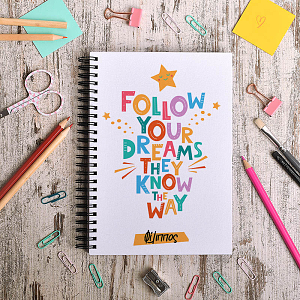 FOLLOW
YOUR
DREAMS
THEY
KNOW
THE
WAY
Φίλιππος